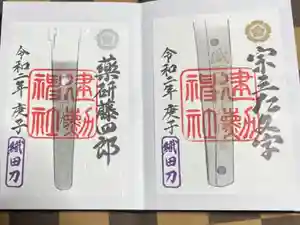 宗三左文字
建勲神社
令和二年 庚子
織田刀
薬研藤四郎
建勲神社
令和二年 庚子
織田刀